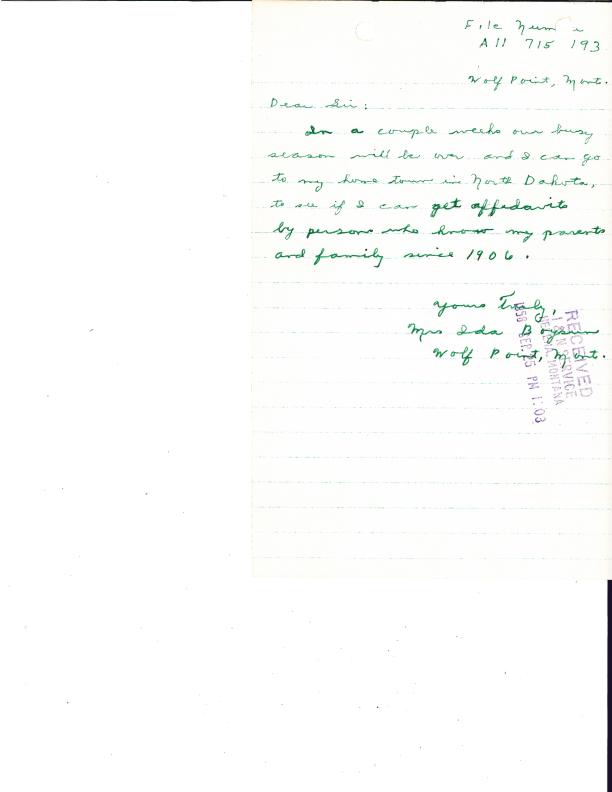 File Num
A11 715 193
Wolf Point, Mont.
Dear Sir:
In a couple weeks our busy
season will be over and I can go
to my home town in North Dakota,
to see if I can get affedavits
by persons who know my parents
and family since 1906.
Yours Truly,
Mrs Ida Boysun
Wolf Point, Mont.
RECEIVED
I & N SERVICE
HELENA, MONTANA
SEP. 25 PM 1:03